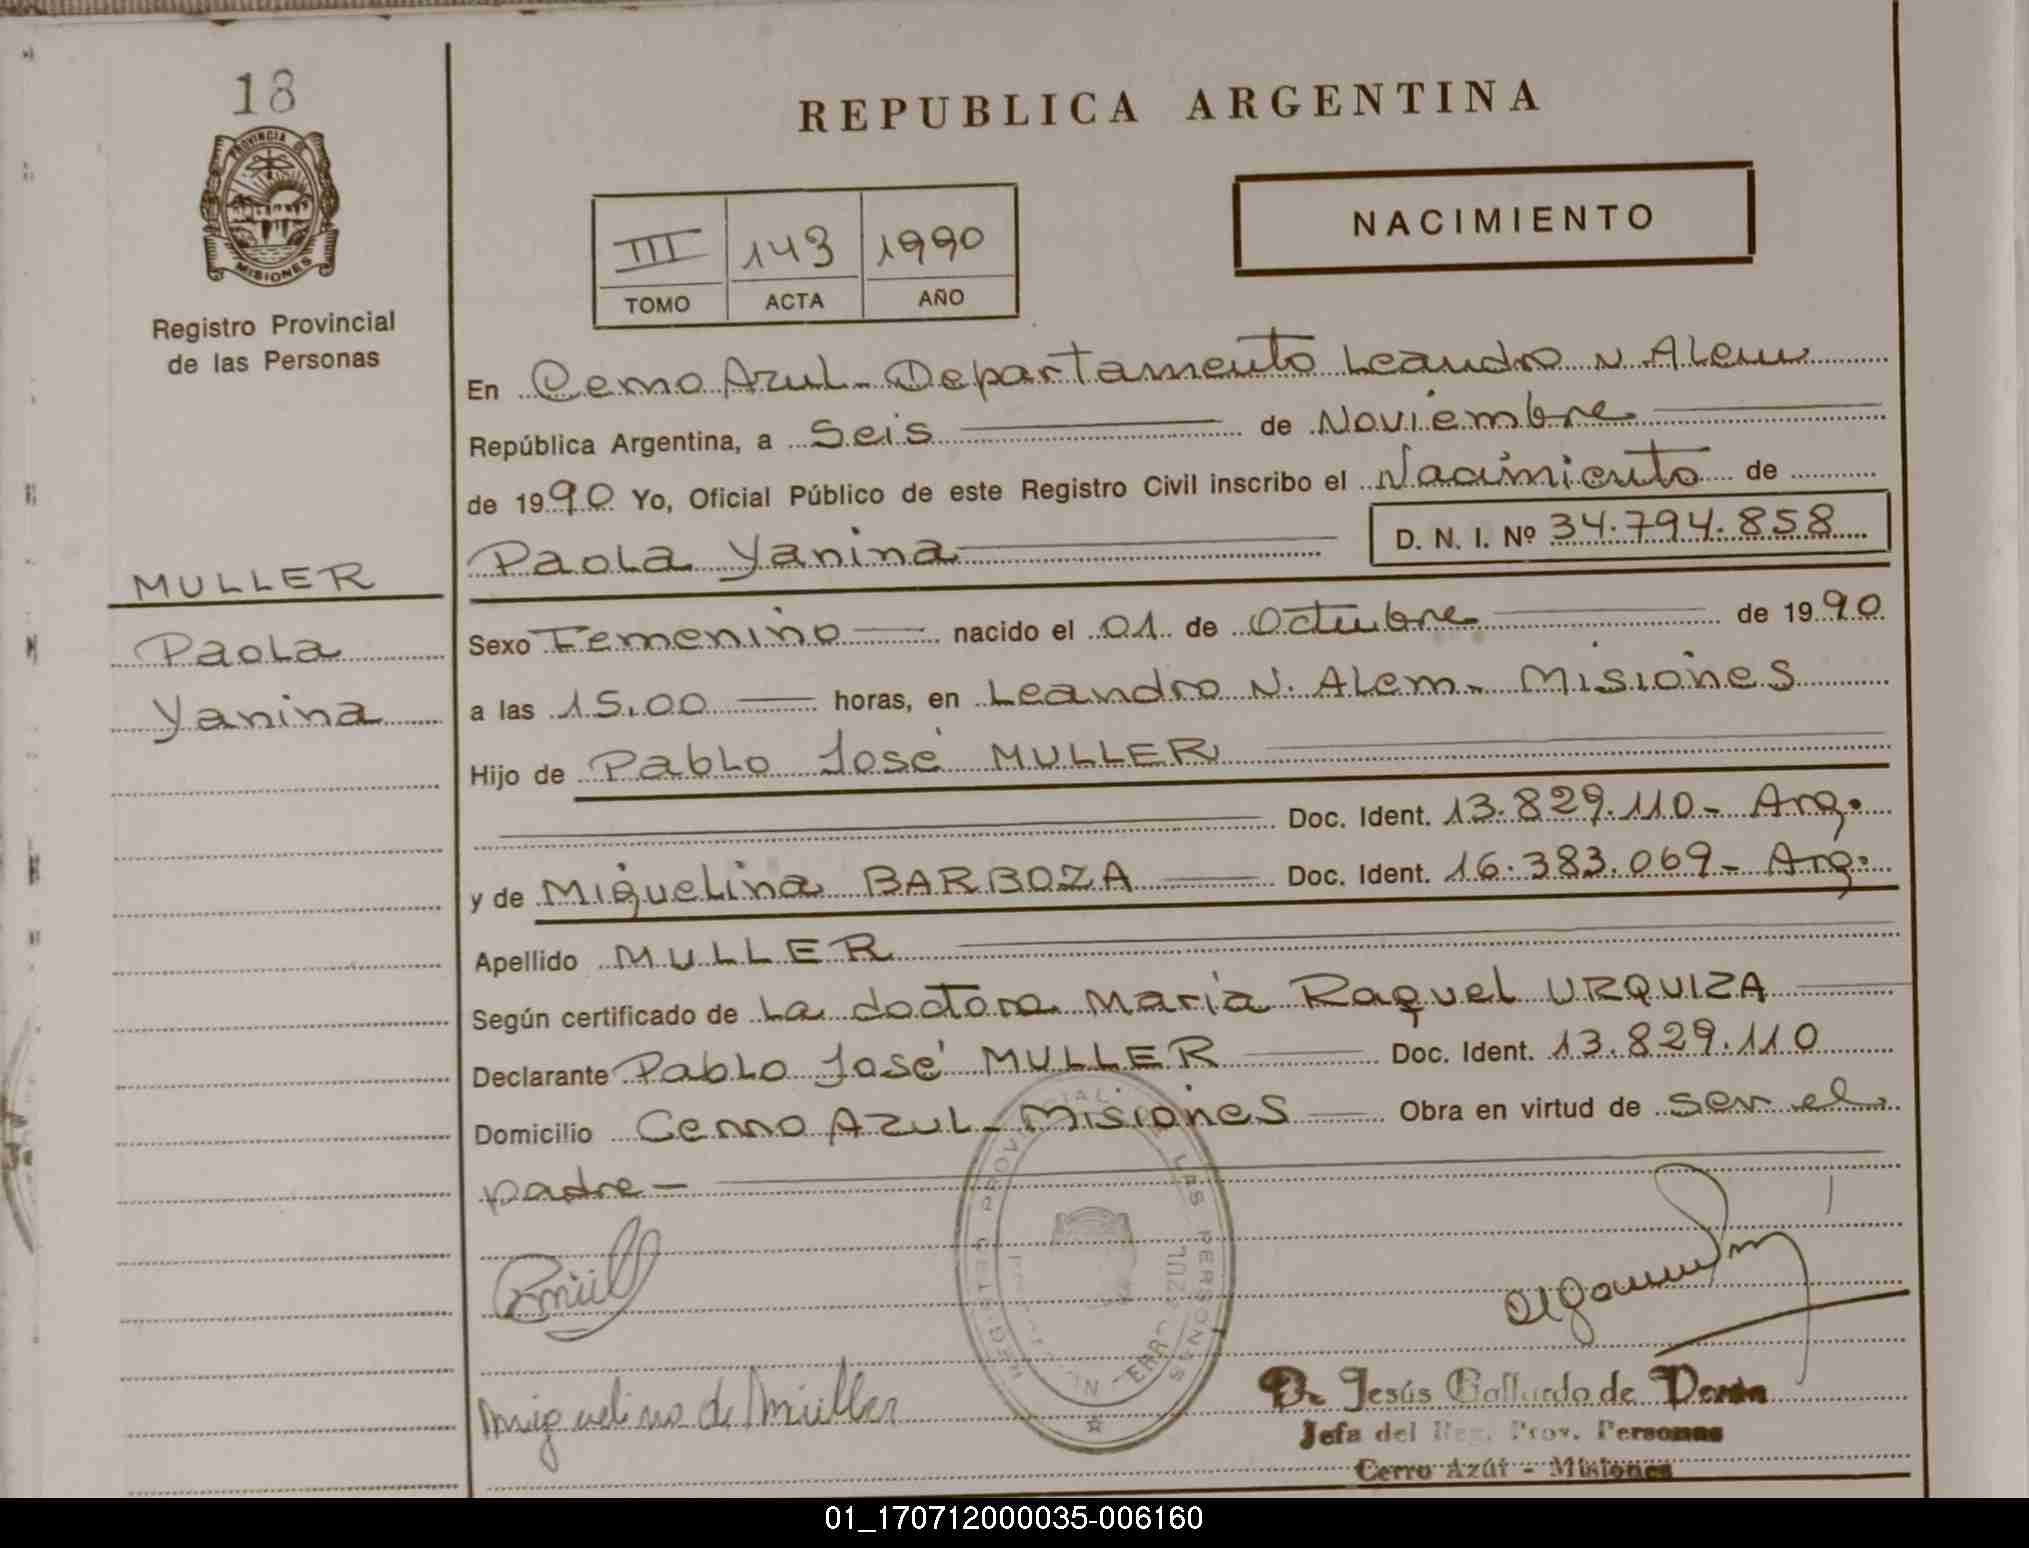 18
PROVINCIA DE
MISIONES
Registro Provincial
de las Personas
MULLER
Paola
Yanina
REPUBLICA ARGENTINA
III 143 1990
TOMO ACTA AÑO
NACIMIENTO
En Cerro Azul - Departamento Leandro N. Alem
República Argentina, a Seis de Noviembre
de 1990 Yo, Oficial Público de este Registro Civil inscribo el Nacimiento de
Paola Yanina D. N. I. Nº 34.794.858
Sexo Femenino nacido el 01 de Octubre de 1990
a las 15,00 horas, en Leandro N. Alem - Misiones
Hijo de Pablo José MULLER
Doc. Ident. 13.829.110 - Arg.
y de Miguelina BARBOZA Doc. Ident. 16.383.069 - Arg.
Apellido MULLER
Según certificado de La doctora Maria Raquel URQUIZA
Declarante Pablo José MULLER Doc. Ident. 13.829.110
Domicilio Cerro Azul - Misiones Obra en virtud de ser el
padre -
Miguelina de Müller
LAS PERSONAS
Jesús Gallardo de
Jefa del Reg. Prov. Personas
Cerro Azúl - Misiones
01_170712000035-006160